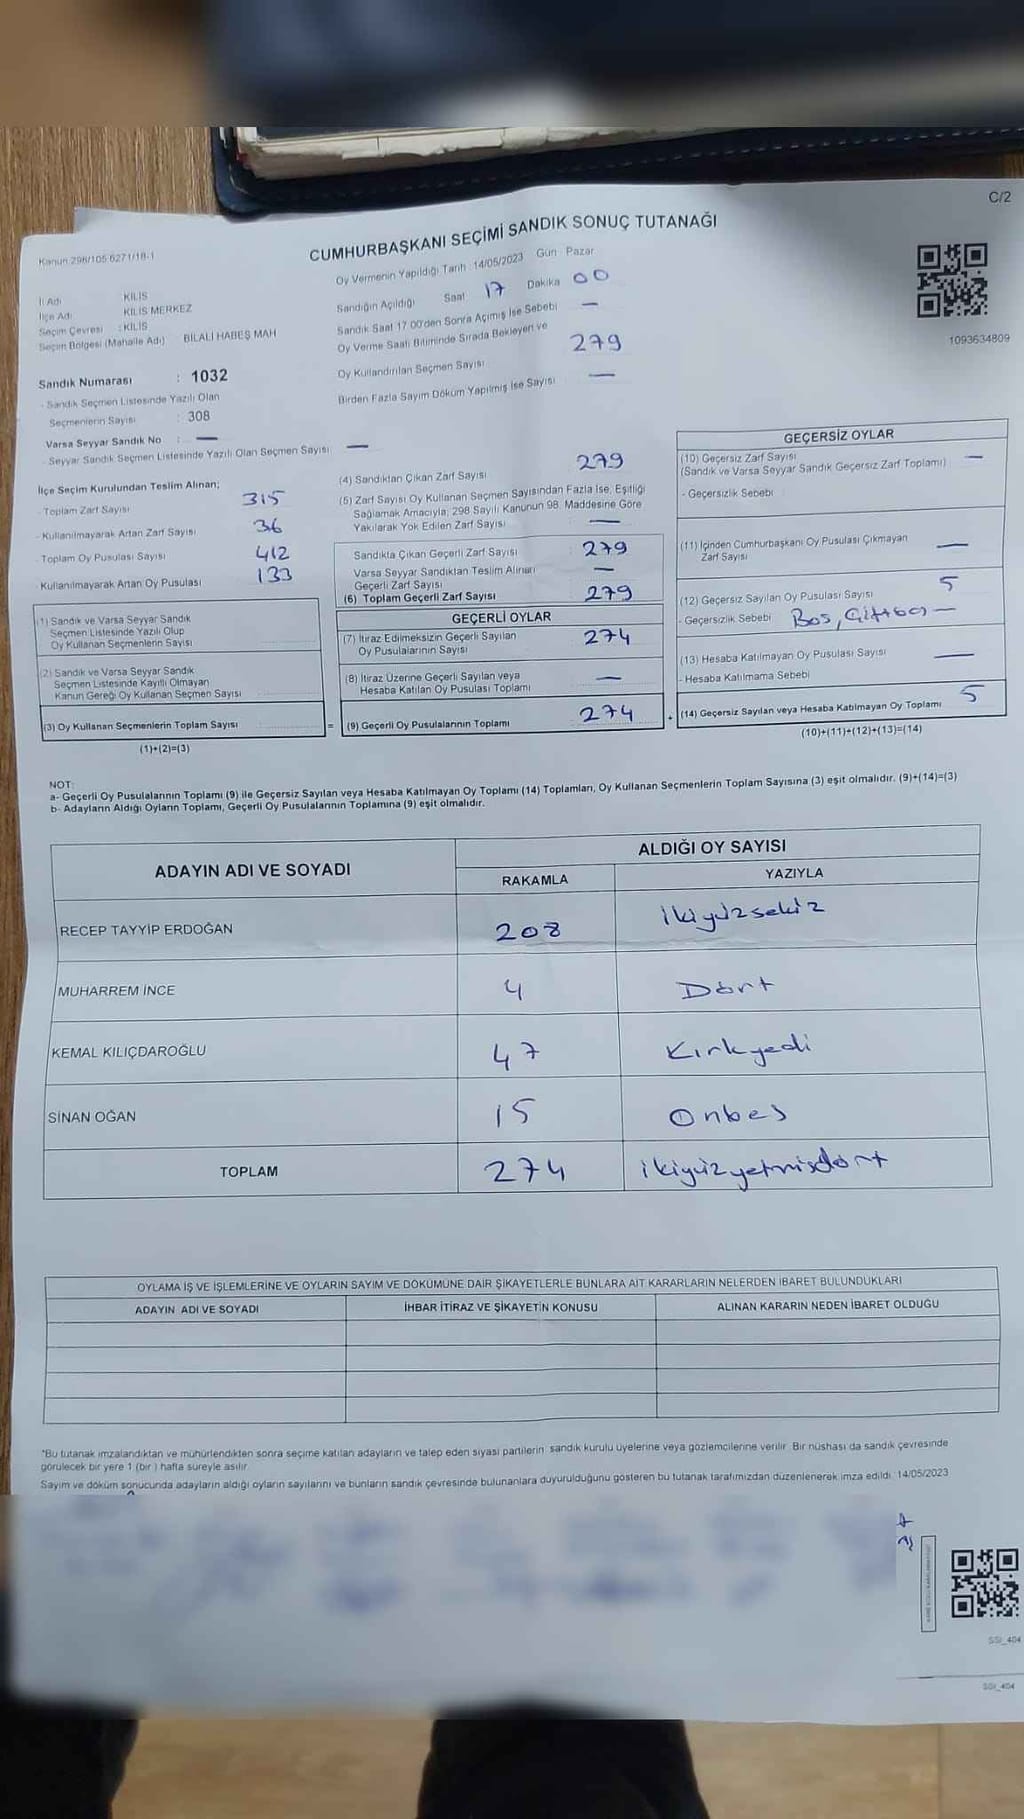 C/2
CUMHURBAŞKANI SEÇİMİ SANDIK SONUÇ TUTANAĞI
Kanun 298/105 6271/18-1
Oy Vermenin Yapıldığı Tarih : 14/05/2023 Gün : Pazar
İl Adı : KİLİS
İlçe Adı : KİLİS MERKEZ
Seçim Çevresi : KİLİS
Seçim Bölgesi (Mahalle Adı) BİLALİ HABEŞ MAH
Sandık Numarası : 1032
- Sandık Seçmen Listesinde Yazılı Olan
Seçmenlerin Sayısı : 308
Varsa Seyyar Sandık No : —
- Seyyar Sandık Seçmen Listesinde Yazılı Olan Seçmen Sayısı —
Sandığın Açıldığı Saat 17 Dakika 00
Sandık Saat 17.00'den Sonra Açılmış İse Sebebi —
Oy Verme Saati Bitiminde Sırada Bekleyen ve
Oy Kullandırılan Seçmen Sayısı 279
Birden Fazla Sayım Döküm Yapılmış İse Sayısı —
1093634809
İlçe Seçim Kurulundan Teslim Alınan;
- Toplam Zarf Sayısı 315
- Kullanılmayarak Artan Zarf Sayısı 36
- Toplam Oy Pusulası Sayısı 412
- Kullanılmayarak Artan Oy Pusulası 133
(1) Sandık ve Varsa Seyyar Sandık
Seçmen Listesinde Yazılı Olup
Oy Kullanan Seçmenlerin Sayısı
(2) Sandık ve Varsa Seyyar Sandık
Seçmen Listesinde Kayıtlı Olmayan
Kanun Gereği Oy Kullanan Seçmen Sayısı
(3) Oy Kullanan Seçmenlerin Toplam Sayısı =
(1)+(2)=(3)
(4) Sandıktan Çıkan Zarf Sayısı 279
(5) Zarf Sayısı Oy Kullanan Seçmen Sayısından Fazla İse, Eşitliği
Sağlamak Amacıyla, 298 Sayılı Kanunun 98. Maddesine Göre
Yakılarak Yok Edilen Zarf Sayısı —
Sandıkta Çıkan Geçerli Zarf Sayısı 279
Varsa Seyyar Sandıktan Teslim Alınan
Geçerli Zarf Sayısı —
(6) Toplam Geçerli Zarf Sayısı 279
GEÇERLİ OYLAR
(7) İtiraz Edilmeksizin Geçerli Sayılan
Oy Pusulalarının Sayısı 274
(8) İtiraz Üzerine Geçerli Sayılan veya
Hesaba Katılan Oy Pusulası Toplamı —
(9) Geçerli Oy Pusulalarının Toplamı 274 +
GEÇERSİZ OYLAR
(10) Geçersiz Zarf Sayısı —
(Sandık ve Varsa Seyyar Sandık Geçersiz Zarf Toplamı)
- Geçersizlik Sebebi
(11) İçinden Cumhurbaşkanı Oy Pusulası Çıkmayan
Zarf Sayısı —
(12) Geçersiz Sayılan Oy Pusulası Sayısı 5
- Geçersizlik Sebebi Boş,
(13) Hesaba Katılmayan Oy Pusulası Sayısı —
- Hesaba Katılmama Sebebi
(14) Geçersiz Sayılan veya Hesaba Katılmayan Oy Toplamı 5
(10)+(11)+(12)+(13)=(14)
NOT:
a- Geçerli Oy Pusulalarının Toplamı (9) ile Geçersiz Sayılan veya Hesaba Katılmayan Oy Toplamı (14) Toplamları, Oy Kullanan Seçmenlerin Toplam Sayısına (3) eşit olmalıdır. (9)+(14)=(3)
b- Adayların Aldığı Oyların Toplamı, Geçerli Oy Pusulalarının Toplamına (9) eşit olmalıdır.
ADAYIN ADI VE SOYADI
ALDIĞI OY SAYISI
RAKAMLA YAZIYLA
RECEP TAYYİP ERDOĞAN 208 ikiyüzsekiz
MUHARREM İNCE 4 Dört
KEMAL KILIÇDAROĞLU 47 Kırkyedi
SİNAN OĞAN 15 Onbeş
TOPLAM 274 ikiyüzyetmişdört
OYLAMA İŞ VE İŞLEMLERİNE VE OYLARIN SAYIM VE DÖKÜMÜNE DAİR ŞİKAYETLERLE BUNLARA AİT KARARLARIN NELERDEN İBARET BULUNDUKLARI
ADAYIN ADI VE SOYADI İHBAR İTİRAZ VE ŞİKAYETİN KONUSU ALINAN KARARIN NEDEN İBARET OLDUĞU
*Bu tutanak imzalandıktan ve mühürlendikten sonra seçime katılan adayların ve talep eden siyasi partilerin sandık kurulu üyelerine veya gözlemcilerine verilir. Bir nüshası da sandık çevresinde
görülecek bir yere 1 (bir) hafta süreyle asılır.
Sayım ve döküm sonucunda adayların aldığı oyların sayılarını ve bunların sandık çevresinde bulunanlara duyurulduğunu gösteren bu tutanak tarafımızdan düzenlenerek imza edildi. 14/05/2023
SSI_404
SGI_404